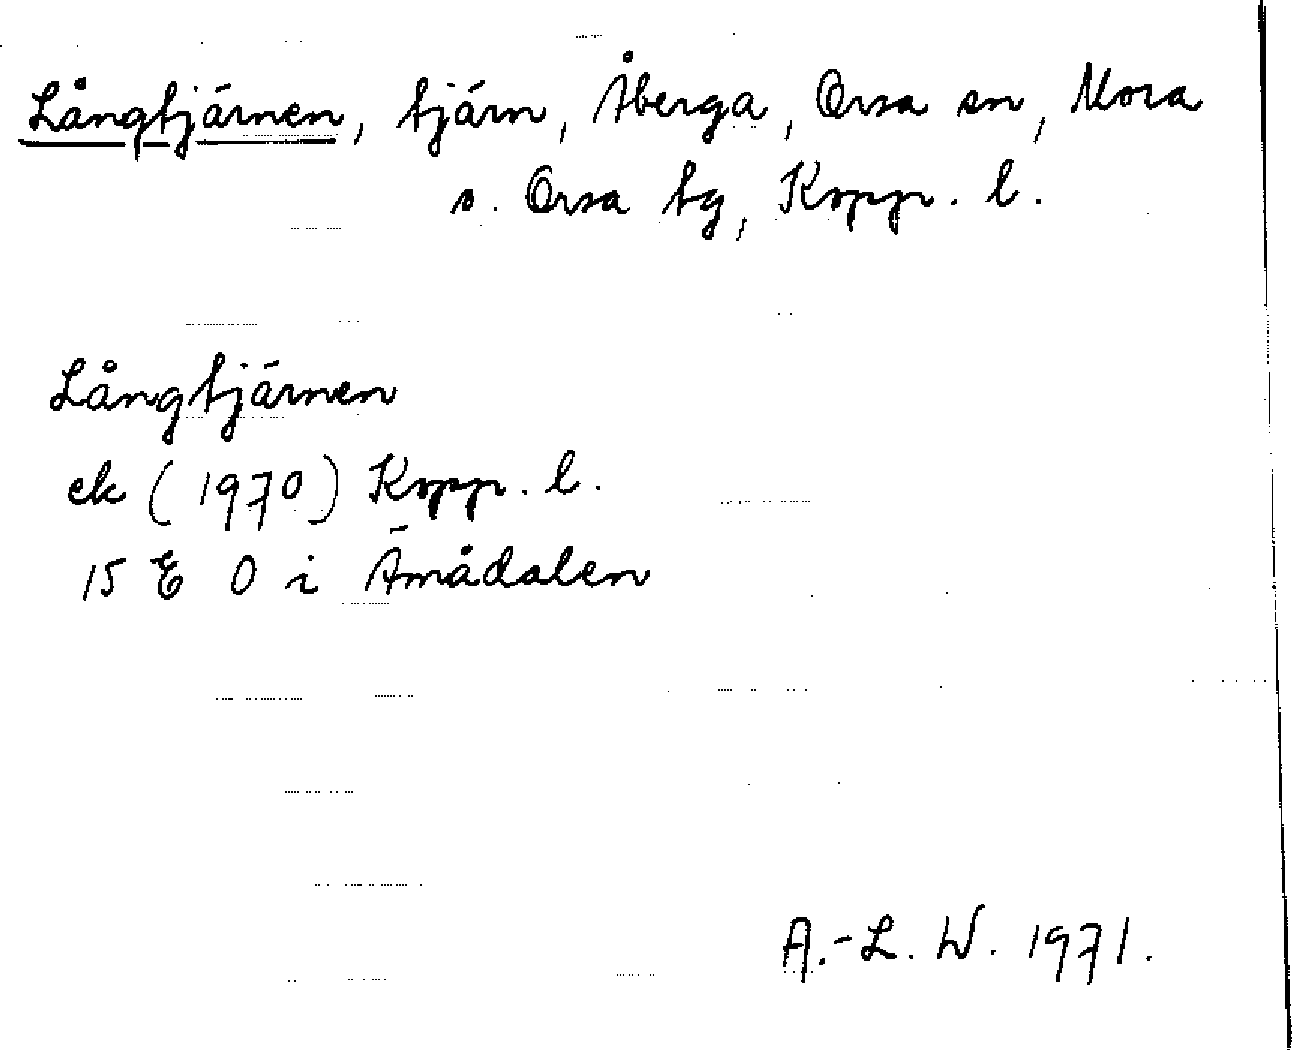 Långtjärnen, tjärn, Åberga, Orsa sn, Mora
s. Orsa tg, Kopp. l.
Långtjärnen
ek (1970) Kopp. l.
15 E 0 i Ämådalen
A.-L. W. 1971.